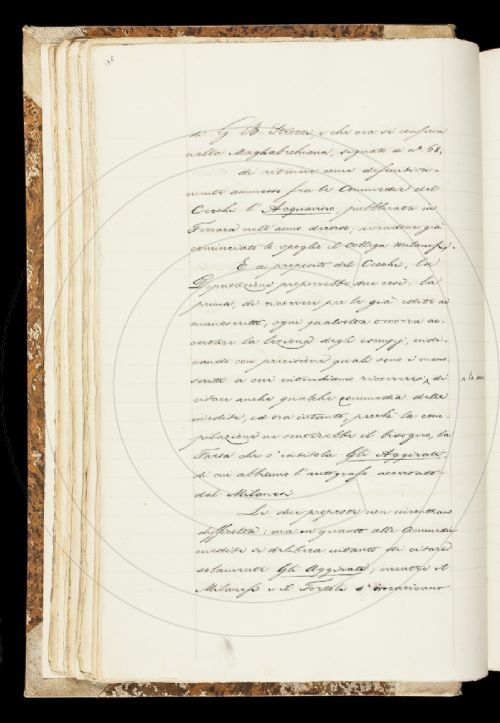 di G. B. Strozzi, e che ora si conserva
nella Magliabechiana, segnato di n.º 68.
di ritenere come definitiva-
mente ammesso fra le Commedie del
Cecchi l'Acquavino, pubblicata in
Ferrara nell'anno decorso; avendone già
cominciato lo spoglio il Collega Milanesi.
E a proposito del Cecchi, la
Deputazione proporrebbe due cose; la
prima, di ricorrere per le già edite ai
manoscritti, ogni qualvolta occorra ac-
certare la lezione degli esempj, indi-
cando con precisione quali sono i mano-
scritti a cui intendiamo ricorrere; di
citare anche qualche commedia delle
inedite, ed ora intanto, perchè la com-
pilazione ne sentirebbe il bisogno, la
Farsa che s'intitola Gli Aggirati,
di cui abbiamo l'autografo
dal Milanesi.
Le due proposte non incontrano
difficoltà: ma in quanto alle Commedie
inedite si delibera intanto di citare
solamente Gli Aggirati; mentre il
Milanesi e il Tortoli s'incaricano